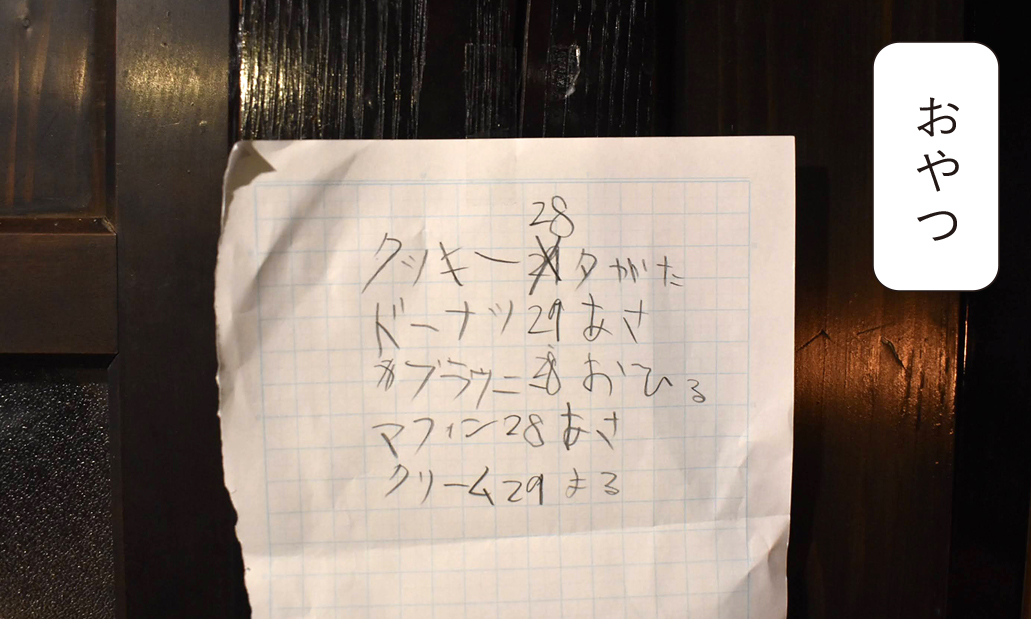 おやつ
28
クッキー 夕がた
ドーナツ 29 あさ
ブラウニー 28 おひる
マフィン 28 あさ
クリーム 29 よる